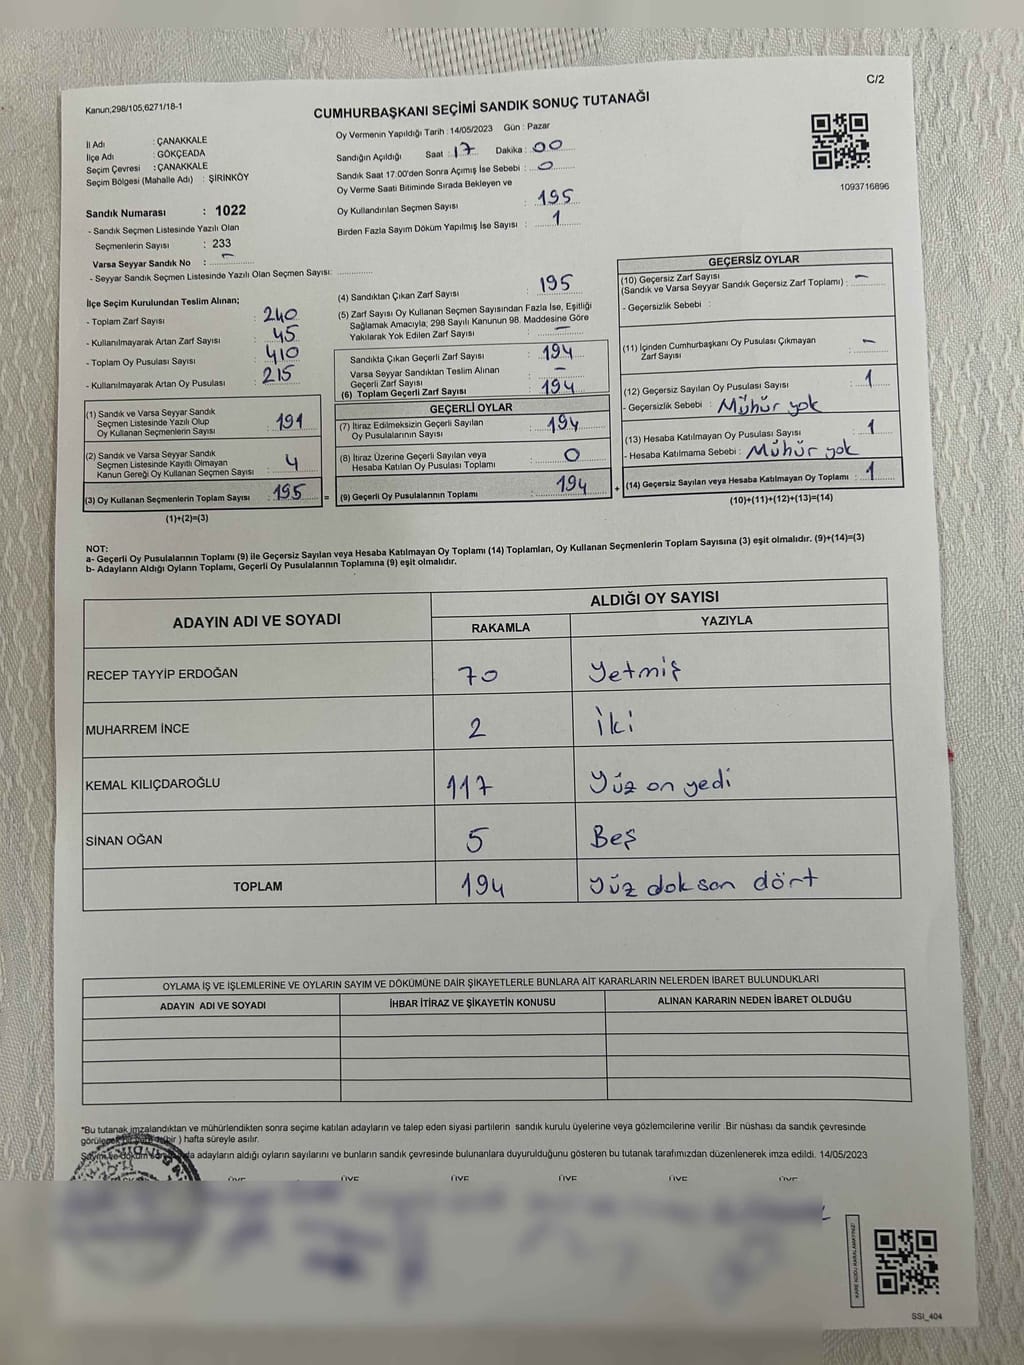 C/2
Kanun;298/105,6271/18-1
CUMHURBAŞKANI SEÇİMİ SANDIK SONUÇ TUTANAĞI
İl Adı : ÇANAKKALE
İlçe Adı : GÖKÇEADA
Seçim Çevresi : ÇANAKKALE
Seçim Bölgesi (Mahalle Adı) : ŞİRİNKÖY
Sandık Numarası : 1022
- Sandık Seçmen Listesinde Yazılı Olan
Seçmenlerin Sayısı : 233
Varsa Seyyar Sandık No : -
- Seyyar Sandık Seçmen Listesinde Yazılı Olan Seçmen Sayısı:
Oy Vermenin Yapıldığı Tarih : 14/05/2023 Gün : Pazar
Sandığın Açıldığı Saat : 17 Dakika : 00
Sandık Saat 17.00'den Sonra Açımış İse Sebebi : 0
Oy Verme Saati Bitiminde Sırada Bekleyen ve
Oy Kullandırılan Seçmen Sayısı : 195
Birden Fazla Sayım Döküm Yapılmış İse Sayısı : 1
1093716896
İlçe Seçim Kurulundan Teslim Alınan;
- Toplam Zarf Sayısı : 240
- Kullanılmayarak Artan Zarf Sayısı : 45
- Toplam Oy Pusulası Sayısı : 410
- Kullanılmayarak Artan Oy Pusulası : 215
(1) Sandık ve Varsa Seyyar Sandık
Seçmen Listesinde Yazılı Olup
Oy Kullanan Seçmenlerin Sayısı : 191
(2) Sandık ve Varsa Seyyar Sandık
Seçmen Listesinde Kayıtlı Olmayan
Kanun Gereği Oy Kullanan Seçmen Sayısı : 4
(3) Oy Kullanan Seçmenlerin Toplam Sayısı : 195 =
(1)+(2)=(3)
(4) Sandıktan Çıkan Zarf Sayısı : 195
(5) Zarf Sayısı Oy Kullanan Seçmen Sayısından Fazla İse, Eşitliği
Sağlamak Amacıyla; 298 Sayılı Kanunun 98. Maddesine Göre
Yakılarak Yok Edilen Zarf Sayısı : -
Sandıkta Çıkan Geçerli Zarf Sayısı : 194
Varsa Seyyar Sandıktan Teslim Alınan
Geçerli Zarf Sayısı : -
(6) Toplam Geçerli Zarf Sayısı : 194
GEÇERLİ OYLAR
(7) İtiraz Edilmeksizin Geçerli Sayılan
Oy Pusulalarının Sayısı : 194
(8) İtiraz Üzerine Geçerli Sayılan veya
Hesaba Katılan Oy Pusulası Toplamı : 0
(9) Geçerli Oy Pusulalarının Toplamı : 194 +
GEÇERSİZ OYLAR
(10) Geçersiz Zarf Sayısı
(Sandık ve Varsa Seyyar Sandık Geçersiz Zarf Toplamı) : -
- Geçersizlik Sebebi :
(11) İçinden Cumhurbaşkanı Oy Pusulası Çıkmayan
Zarf Sayısı : -
(12) Geçersiz Sayılan Oy Pusulası Sayısı : 1
- Geçersizlik Sebebi : Mühür yok
(13) Hesaba Katılmayan Oy Pusulası Sayısı : 1
- Hesaba Katılmama Sebebi : Mühür yok
(14) Geçersiz Sayılan veya Hesaba Katılmayan Oy Toplamı : 1
(10)+(11)+(12)+(13)=(14)
NOT:
a- Geçerli Oy Pusulalarının Toplamı (9) ile Geçersiz Sayılan veya Hesaba Katılmayan Oy Toplamı (14) Toplamları, Oy Kullanan Seçmenlerin Toplam Sayısına (3) eşit olmalıdır. (9)+(14)=(3)
b- Adayların Aldığı Oyların Toplamı, Geçerli Oy Pusulalarının Toplamına (9) eşit olmalıdır.
ADAYIN ADI VE SOYADI
ALDIĞI OY SAYISI
RAKAMLA YAZIYLA
RECEP TAYYİP ERDOĞAN 70 Yetmiş
MUHARREM İNCE 2 İki
KEMAL KILIÇDAROĞLU 117 Yüz on yedi
SİNAN OĞAN 5 Beş
TOPLAM 194 Yüz doksan dört
OYLAMA İŞ VE İŞLEMLERİNE VE OYLARIN SAYIM VE DÖKÜMÜNE DAİR ŞİKAYETLERLE BUNLARA AİT KARARLARIN NELERDEN İBARET BULUNDUKLARI
ADAYIN ADI VE SOYADI İHBAR İTİRAZ VE ŞİKAYETİN KONUSU ALINAN KARARIN NEDEN İBARET OLDUĞU
*Bu tutanak imzalandıktan ve mühürlendikten sonra seçime katılan adayların ve talep eden siyasi partilerin sandık kurulu üyelerine veya gözlemcilerine verilir Bir nüshası da sandık çevresinde
hafta süreyle asılır.
adayların aldığı oyların sayılarını ve bunların sandık çevresinde bulunanlara duyurulduğunu gösteren bu tutanak tarafımızdan düzenlenerek imza edildi. 14/05/2023
ÜYE ÜYE ÜYE ÜYE ÜYE ÜYE
KARE KODU KARALAMAYINIZ!
SSI_404